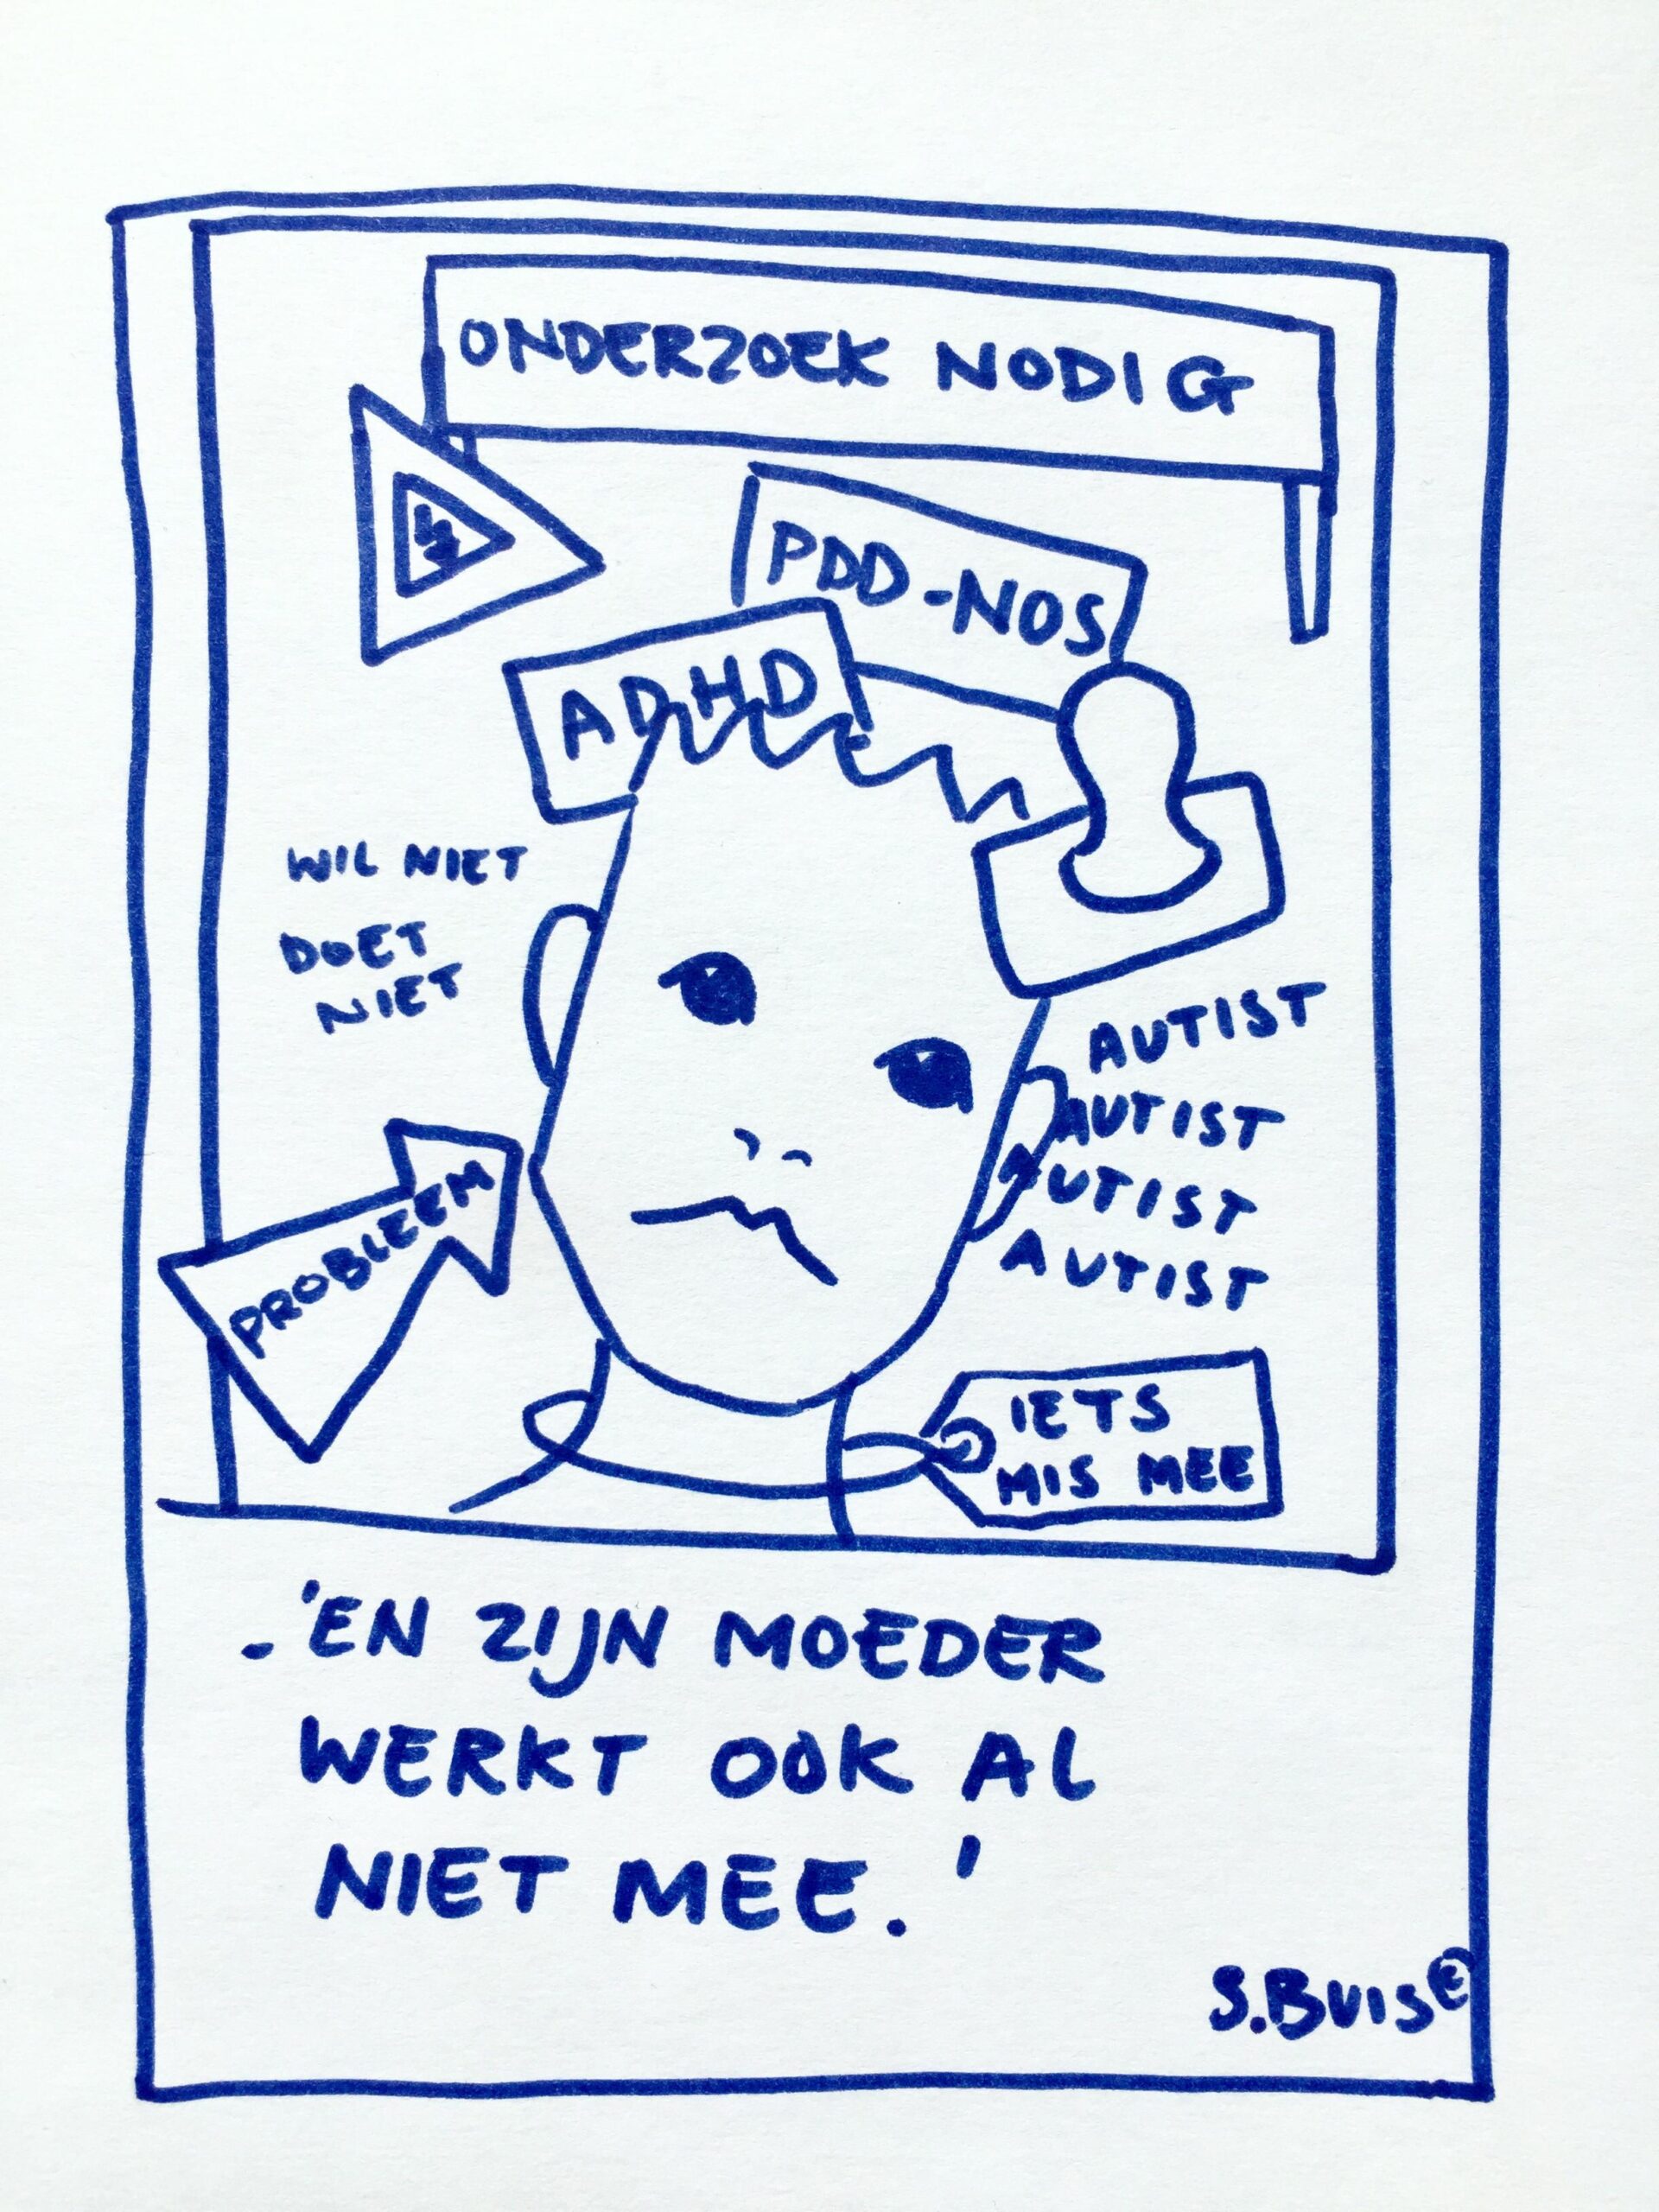 ONDERZOEK NODIG
PDD-NOS
ADHD
WIL NIET
DOET
NIET
AUTIST
AUTIST
AUTIST
AUTIST
PROBLEEM
IETS
MIS MEE
- 'EN ZIJN MOEDER
WERKT OOK AL
NIET MEE.'
S.BUIS©